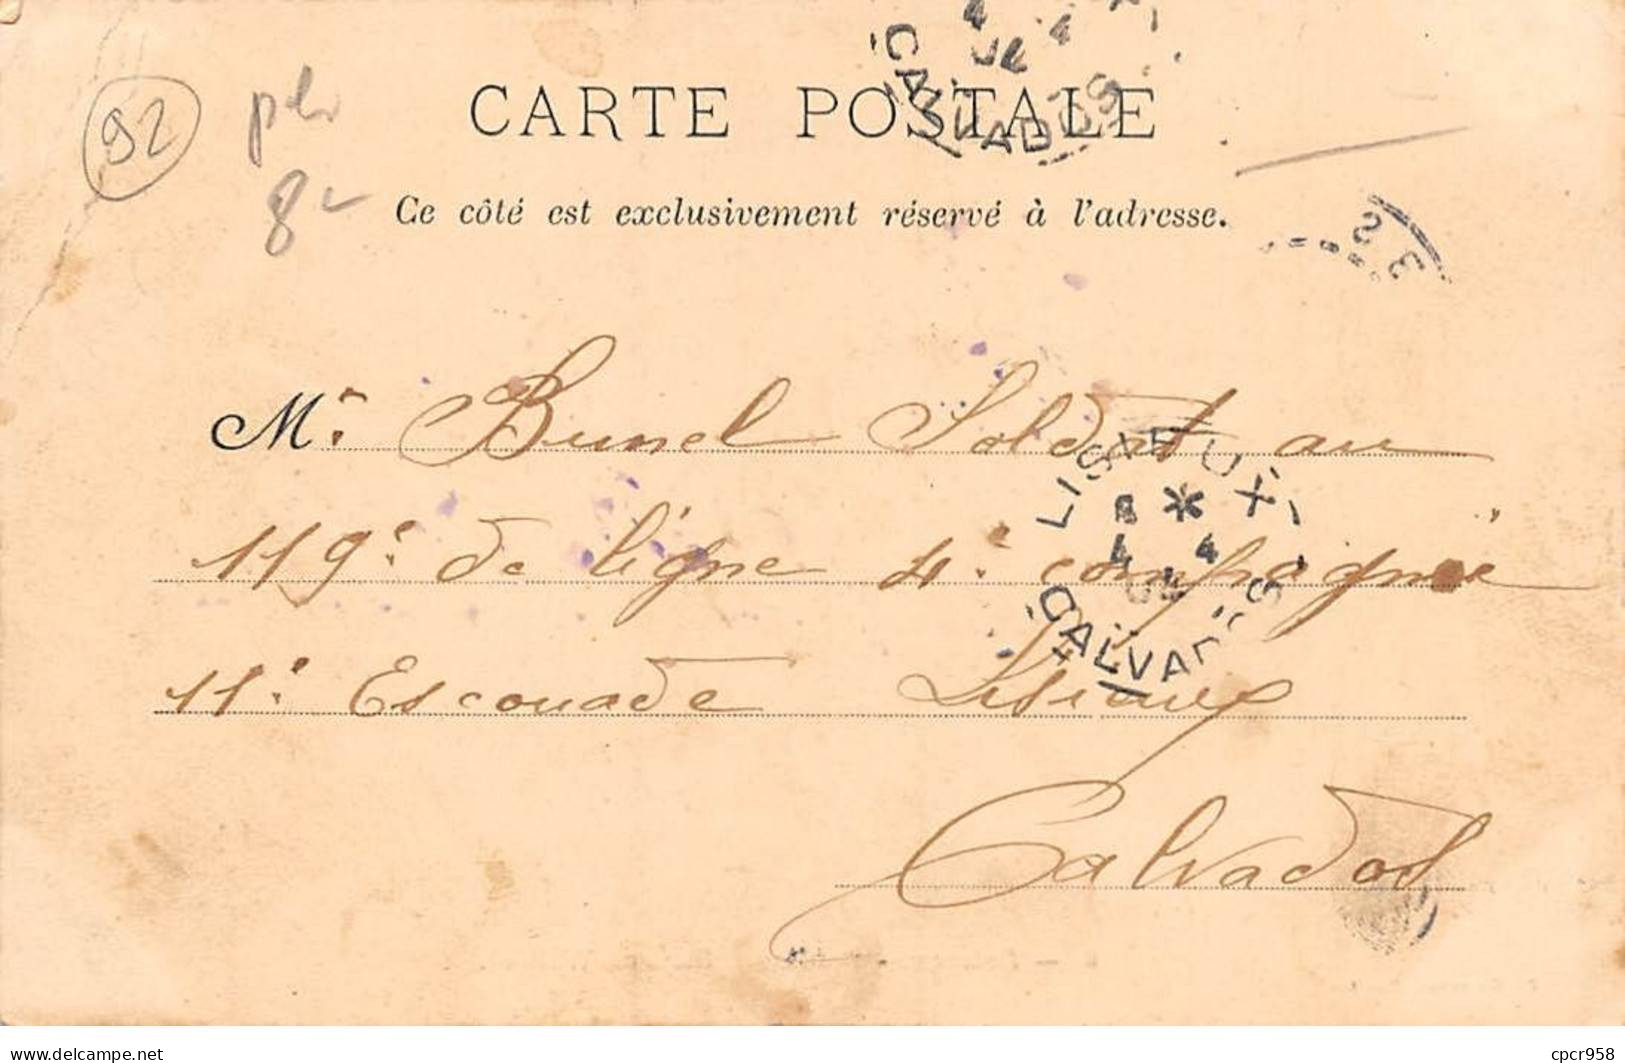 CALVADOS
4 4
92
CARTE POSTALE
8
Ce côté est exclusivement réservé à l'adresse.
S E
Mr. Brunel Soldat au
119e de ligne 4e compagnie
11e Escouade Lisieux
Calvados
LISIEUX
8 *
4 4
CALVADOS
www.delcampe.net
cpcr958